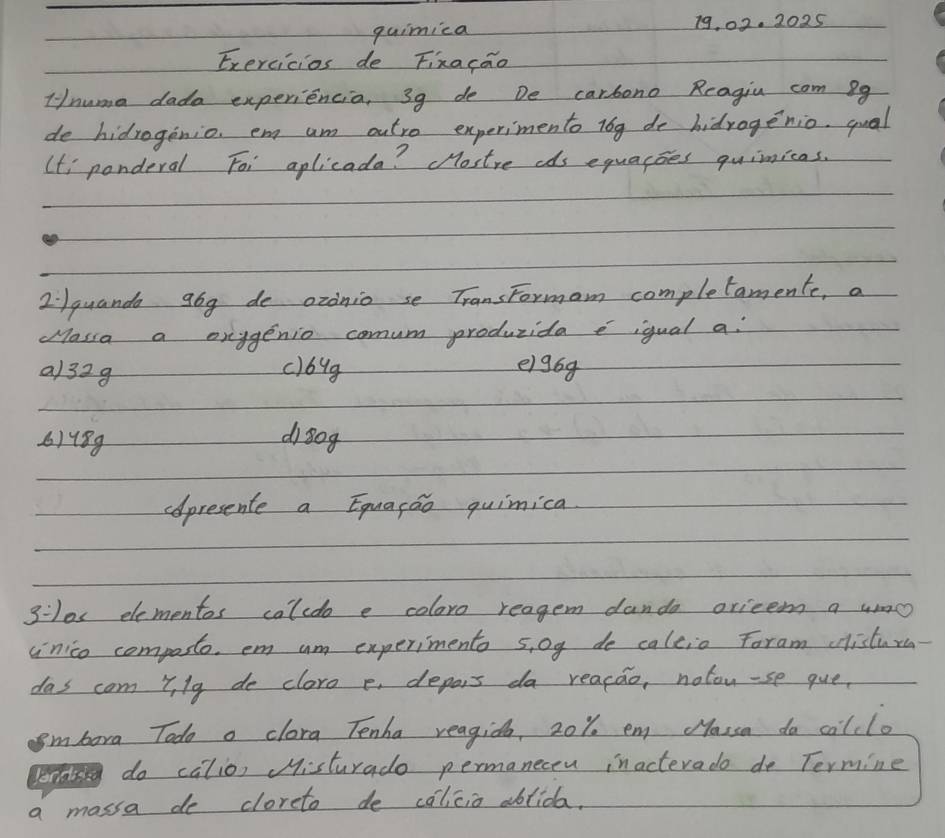 química 19.02.2025
Exercícios de Fixação
1-)numa dada experiência, 3g de De carbono Reagiu com 8g
de hidrogênio. em um outro experimento 16g de hidrogênio. qual
Lei ponderal Foi aplicada? Mostre As equações químicas.
2-)quando 96g de ozônio se TransFormam completamente, a
Massa a oxigênio comum produzida é igual a:
a)32g c)64g e)96g
b)48g d)80g
Apresente a Equação química.
3-)os elementos cálcdo e coloro reagem dando oricem a umo
único composto. em um experimento 5,0g de calcio Foram Mistura-
das com 7,1g de cloro e, depois da reação, notou-se que,
embora Todo o cloro Tenha reagido, 20% em Massa do cálclo
do cálio, Misturado permaneceu inacterado de Termine
a massa de cloreto de cálício obtida.